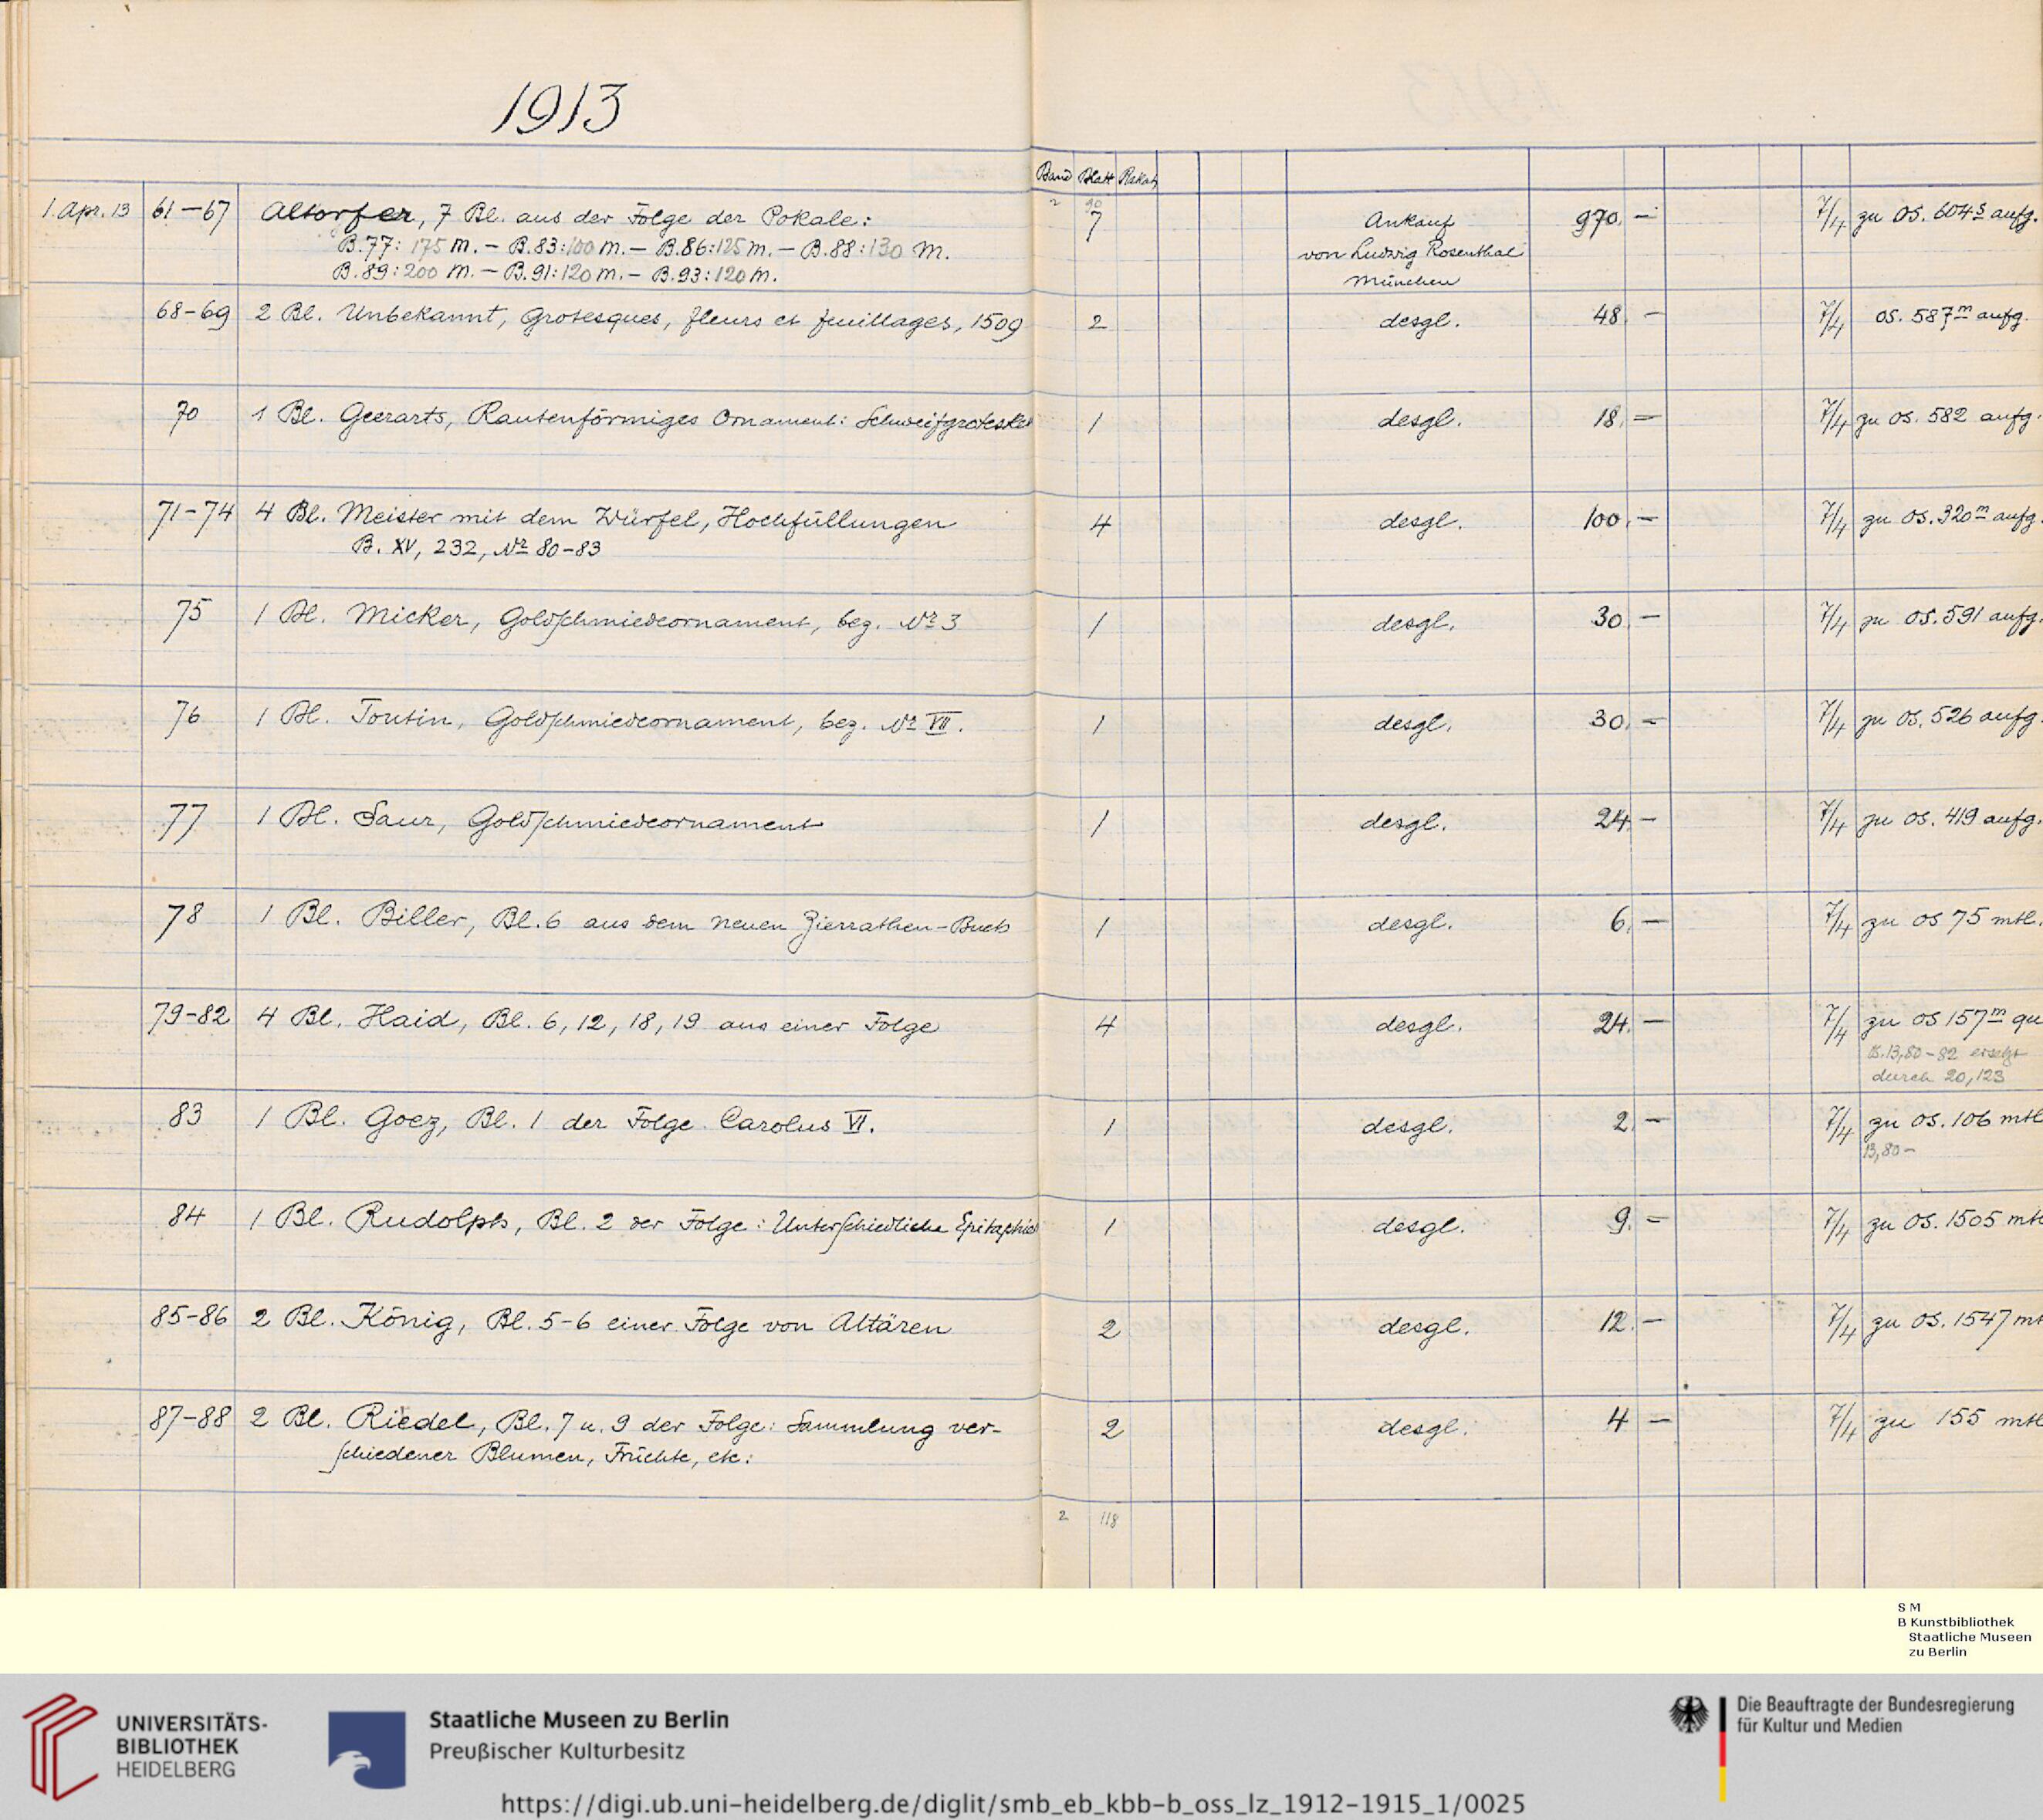 1913
Band Blatt Plakat
2 90
1. Apr. 13 61–67 Altorfer, 7 Bl. aus der Folge der Pokale: 7 Ankauf 970.– 7/4 zu OS. 604 s aufg.
B.77: 175 M. – B.83: 100 M. – B.86: 125 M. – B.88: 130 M. von Ludwig Rosenthal
B.89: 200 M. – B.91: 120 M. – B.93: 120 M. München
68–69 2 Bl. Unbekannt, Grotesques, fleurs et feuillages, 1509 2 desgl. 48.– 7/4 OS. 587 m aufg.
70 1 Bl. Geerarts, Rautenförmiges Ornament: Schweifgrotesken 1 desgl. 18.= 7/4 zu OS. 582 aufg.
71–74 4 Bl. Meister mit dem Würfel, Hochfüllungen 4 desgl. 100.– 7/4 zu OS. 320 m aufg.
B. XV, 232, No 80–83
75 1 Bl. Micker, Goldschmiedeornament, bez. No 3 1 desgl. 30.– 7/4 zu OS. 591 aufg.
76 1 Bl. Toutin, Goldschmiedeornament, bez. No VII. 1 desgl. 30.– 7/4 zu OS. 526 aufg.
77 1 Bl. Saur, Goldschmiedeornament 1 desgl. 24.– 7/4 zu OS. 419 aufg.
78 1 Bl. Biller, Bl. 6 aus dem neuen Zierrathen-Buch 1 desgl. 6.– 7/4 zu OS 75 mtl.
79–82 4 Bl. Haid, Bl. 6, 12, 18, 19 aus einer Folge 4 desgl. 24.– 7/4 zu OS 157 m qu
13,80–82 ersetzt
durch 20,123
83 1 Bl. Goez, Bl. 1 der Folge Carolus VI. 1 desgl. 2.– 7/4 zu OS. 106 mtl
13,80–
84 1 Bl. Rudolph, Bl. 2 der Folge: Unterschiedliche Epitaphien 1 desgl. 9.= 7/4 zu OS. 1505 mtl
85–86 2 Bl. König, Bl. 5–6 einer Folge von Altären 2 desgl. 12.– 7/4 zu OS. 1547 mt
87–88 2 Bl. Riedel, Bl. 7 u. 9 der Folge: Sammlung ver- 2 desgl. 4 – 7/4 zu 155 mtl
schiedener Blumen, Früchte, etc:
2 118
S M
B Kunstbibliothek
Staatliche Museen
zu Berlin
UNIVERSITÄTS-
BIBLIOTHEK
HEIDELBERG
Staatliche Museen zu Berlin
Preußischer Kulturbesitz
Die Beauftragte der Bundesregierung
für Kultur und Medien
https://digi.ub.uni-heidelberg.de/diglit/smb_eb_kbb-b_oss_lz_1912-1915_1/0025